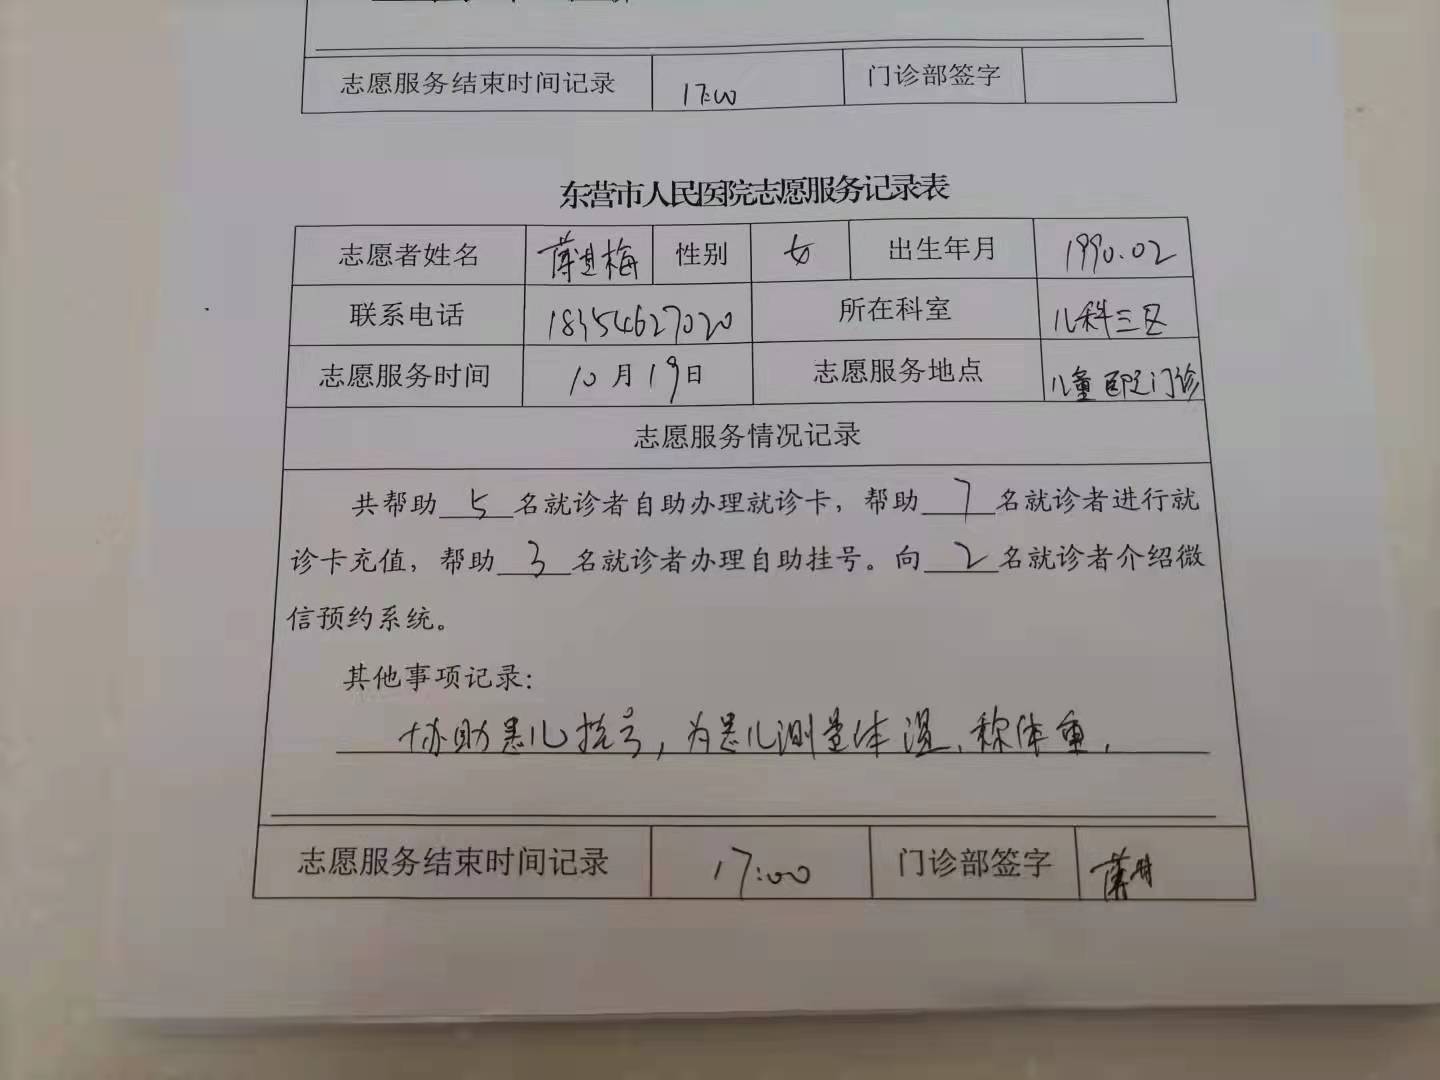 志愿服务结束时间记录 17:00 门诊部签字
东营市人民医院志愿服务记录表
志愿者姓名 薄其梅 性别 女 出生年月 1990.02
联系电话 18354627020 所在科室 儿科三区
志愿服务时间 10月19日 志愿服务地点 儿童医院门诊
志愿服务情况记录
共帮助5名就诊者自助办理就诊卡，帮助7名就诊者进行就
诊卡充值，帮助3名就诊者办理自助挂号。向2名就诊者介绍微
信预约系统。
其他事项记录：
协助患儿挂号，为患儿测量体温、称体重，
志愿服务结束时间记录 17:00 门诊部签字